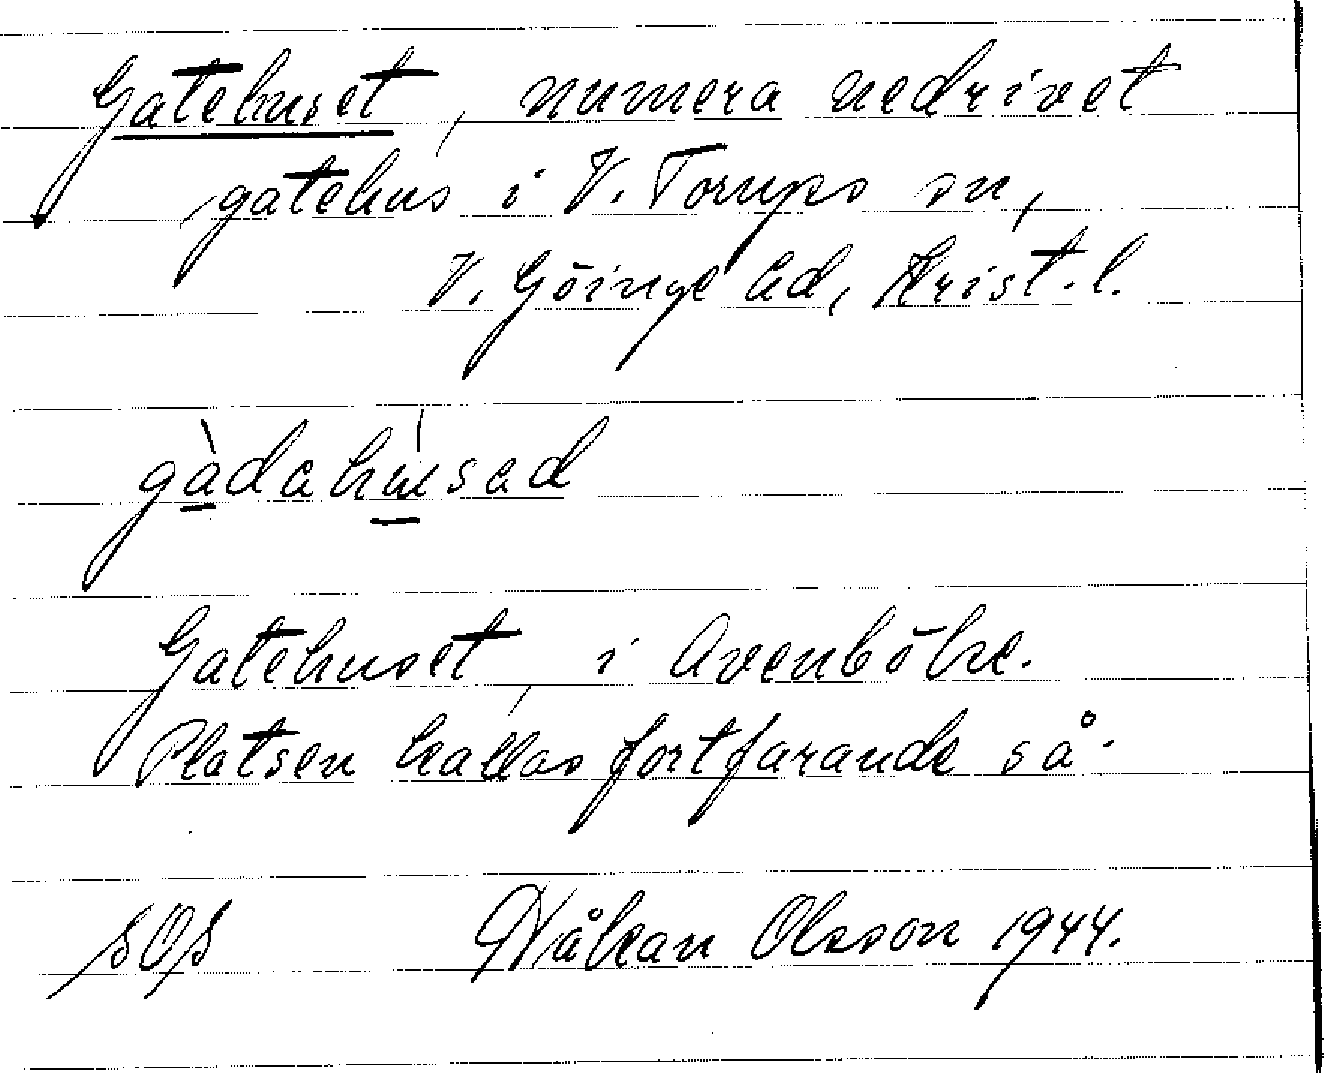 Gatehuset, numera nedrivet
gatehus i V. Torups sn,
V. Göinge hd, Krist. l.
gàdahúsad
Gatehuset, i Avenböke.
Platsen kallas fortfarande så.
SOS Håkan Olsson 1944.